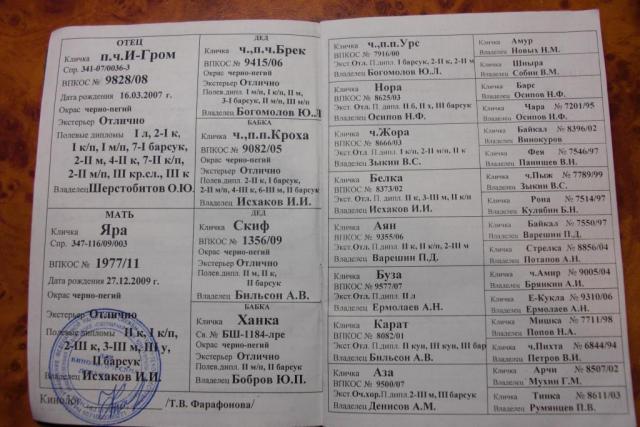 ОТЕЦ
Кличка п.ч.И-Гром
Спр. 341-07/0036-3
ВПКОС № 9828/08
Дата рождения 16.03.2007 г.
Окрас черно-пегий
Экстерьер Отлично
Полевые дипломы I л, 2-I к,
I к/п, I м/п, 7-I барсук,
2-II м, 4-II к, 7-II к/п,
2-II м/п, III кр.сл., III к
Владелец Шерстобитов О.Ю.
МАТЬ
Кличка Яра
Спр. 347-116/09/003
ВПКОС № 1977/11
Дата рождения 27.12.2009 г.
Окрас черно-пегий
Экстерьер Отлично
Полевые дипломы II к, I к/п,
2-III к, 3-III м, III у,
II барсук
Владелец Исхаков И.И.
Кинолог /Т.В. Фарафонова/
ДЕД
Кличка ч.,п.ч.Брек
ВПКОС № 9415/06
Окрас черно-пегий
Экстерьер Отлично
Полев.дипл. I м/п, I к/п, II м,
3-I барсук, II к/п, III м/п
Владелец Богомолов Ю.Л
БАБКА
Кличка ч.,п.п.Кроха
ВПКОС № 9082/05
Окрас черно-пегий
Экстерьер Отлично
Полев.дипл. 2-II к, I барсук,
2-II м/п, 4-III к, 6-III м, II барсук
Владелец Исхаков И.И.
ДЕД
Кличка Скиф
ВПКОС № 1356/09
Окрас черно-пегий
Экстерьер Отлично
Полев.дипл. II м, II к,
II барсук
Владелец Бильсон А.В.
БАБКА
Кличка Ханка
Св. № БШ-1184-лре
Окрас черно-пегий
Экстерьер Отлично
Полев.дипл. II м/п, II барсук
Владелец Бобров Ю.П.
Кличка ч.,п.п.Урс
ВПКОС № 7916/00
Экст Отл. П.дипл. I барсук, 2-II к, 2-II м
Владелец Богомолов Ю.Л.
Кличка Нора
ВПКОС № 8625/03
Экст. Отл. П.дипл. II б, II х, III барсук
Владелец Осипов Н.Ф.
Кличка ч.Жора
ВПКОС № 8666/03
Экст. Отл. П.дипл. II м/п, III к
Владелец Зыкин В.С.
Кличка Белка
ВПКОС № 8373/02
Экст. Отл. П.дипл. II к, 3-III м, III барсук
Владелец Исхаков И.И.
Кличка Аян
ВПКОС № 9355/06
Экст. Отл. П.дипл. II к, II к/п, 2-III м
Владелец Варешин П.Д.
Кличка Буза
ВПКОС № 9577/07
Экст Отл. П.дипл. II л
Владелец Ермолаев А.Н.
Кличка Карат
ВПКОС № 8082/01
Экст Отл. П.дипл. II кун, III кун, III барсук
Владелец Бильсон А.В.
Кличка Аза
ВПКОС № 9500/07
Экст.Оч.хор.П.дипл. 2-III м, III барсук
Владелец Денисов А.М.
Кличка Амур
Владелец Новых Н.М.
Кличка Шныра
Владелец Собин В.М.
Кличка Барс
Владелец Осипов Н.Ф.
Кличка Чара № 7201/95
Владелец Осипов Н.Ф.
Кличка Байкал № 8396/02
Владелец Винокуров
Кличка Фея № 7546/97
Владелец Панишев В.Н.
Кличка ч.Пыж № 7789/99
Владелец Зыкин В.С.
Кличка Рона № 7514/97
Владелец Кулябин Б.Н.
Кличка Байкал № 7550/97
Владелец Варешин П.Д.
Кличка Стрелка № 8856/04
Владелец Потапов А.Н.
Кличка ч.Амир № 9005/04
Владелец Брянкин А.И.
Кличка Е-Кукла № 9310/06
Владелец Ермолаев А.Н.
Кличка Мишка № 7711/98
Владелец Попов Н.А.
Кличка ч.Пихта № 6844/94
Владелец Петров В.И.
Кличка Арчи № 8507/02
Владелец Мухин Г.М.
Кличка Типка № 8611/03
Владелец Румянцев П.В.